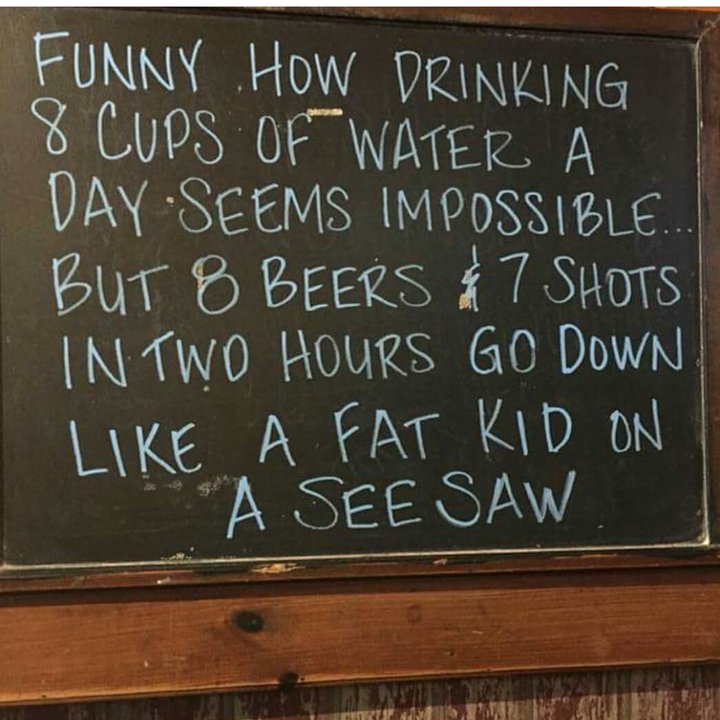 FUNNY HOW DRINKING
8 CUPS OF WATER A
DAY SEEMS IMPOSSIBLE...
BUT 8 BEERS & 7 SHOTS
IN TWO HOURS GO DOWN
LIKE A FAT KID ON
A SEESAW